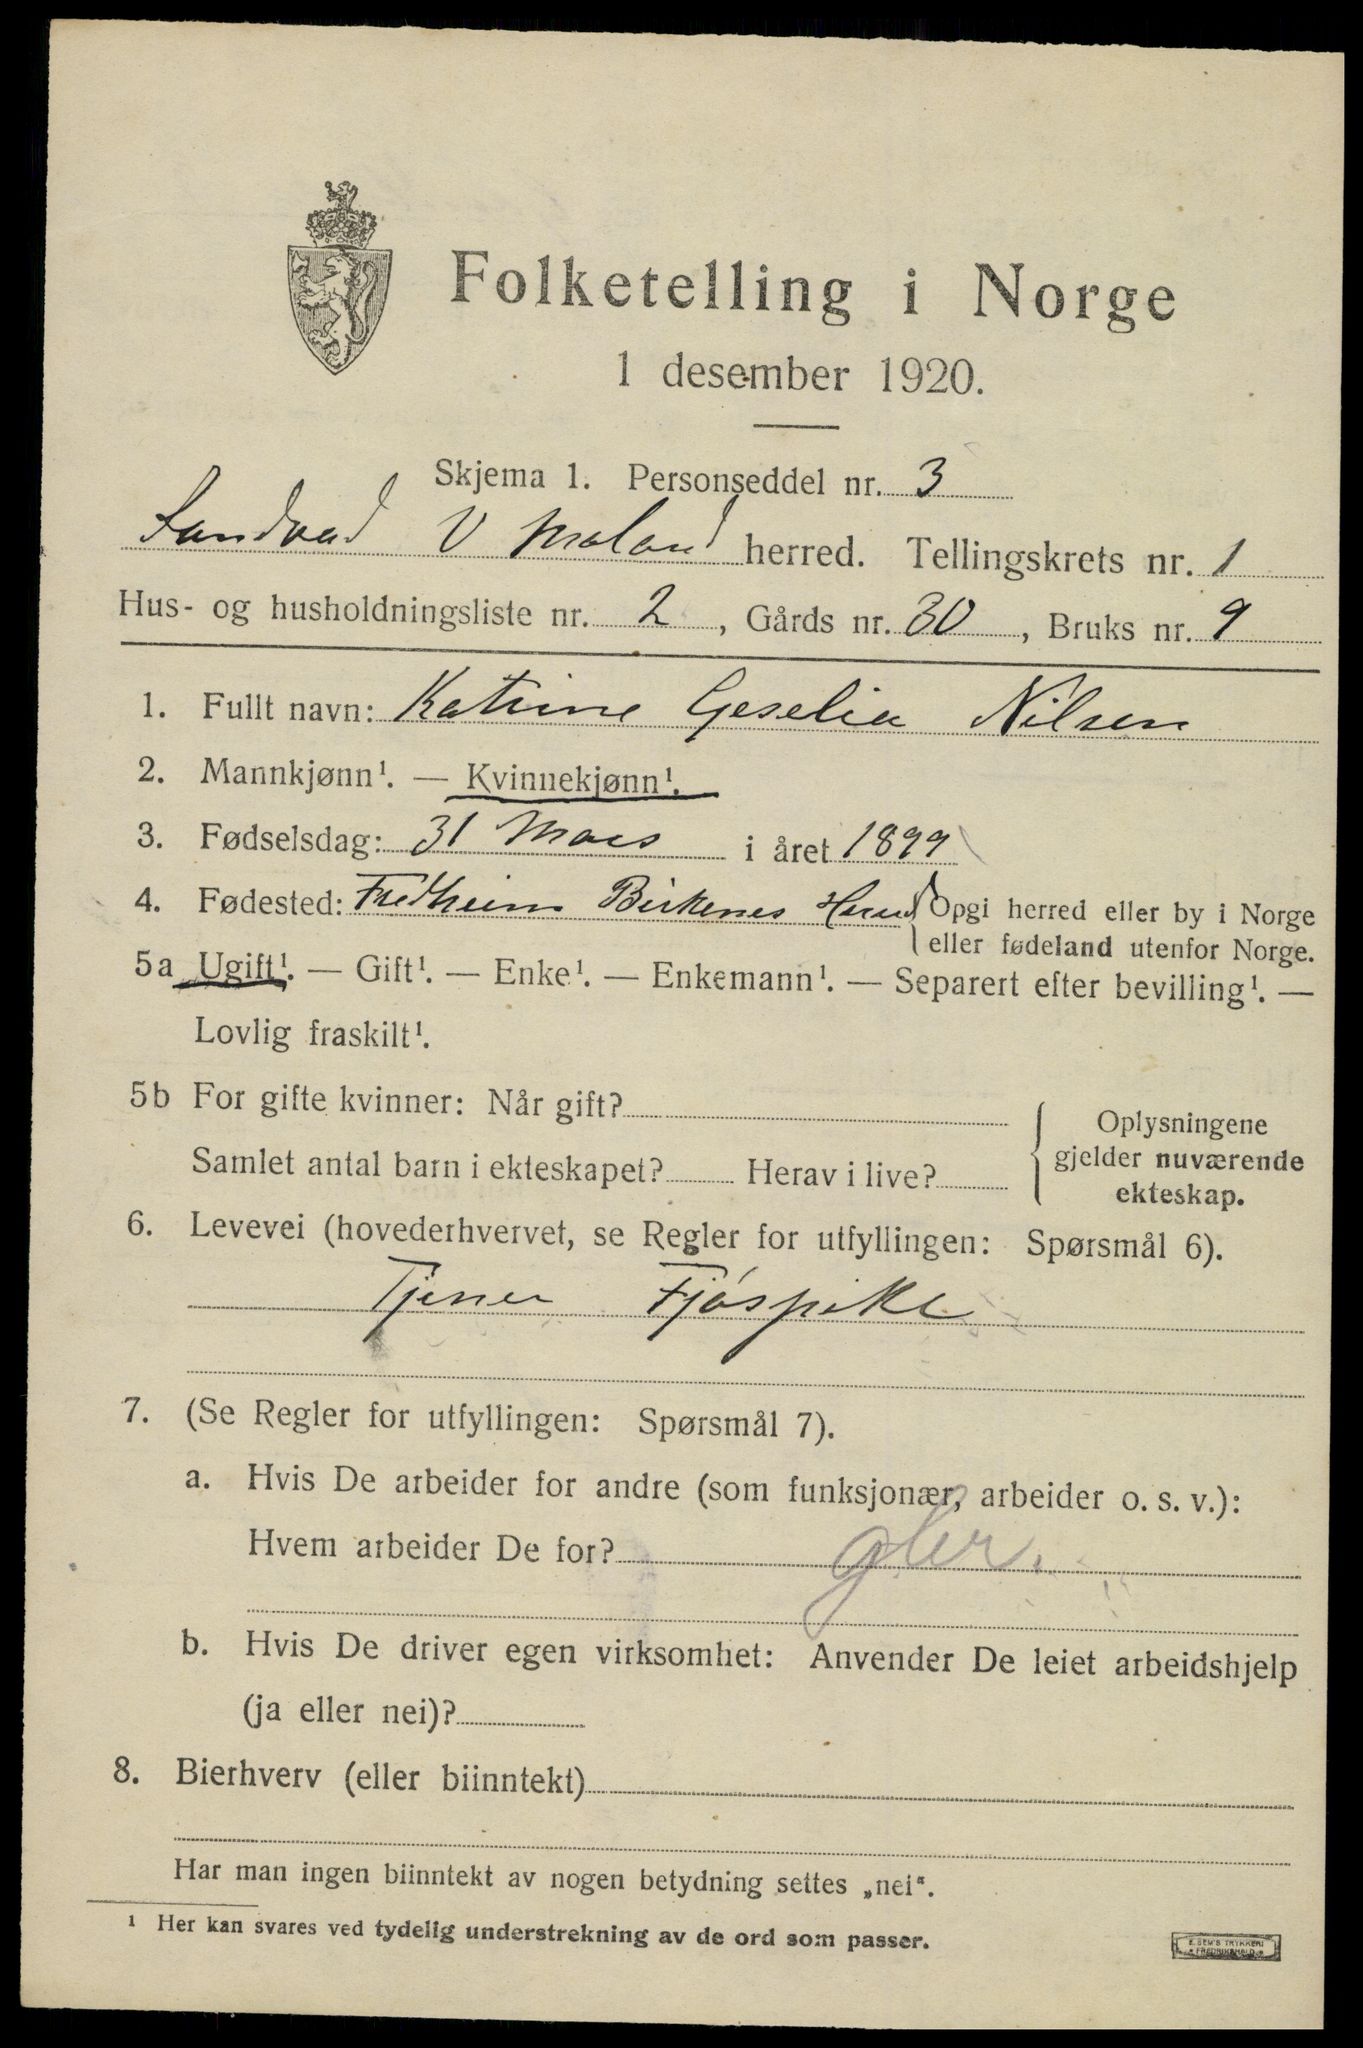 Folketelling i Norge
1 desember 1920.
Skjema 1. Personseddel nr. 3
Landvad V Moland herred. Tellingskrets nr. 1
Hus- og husholdningsliste nr. 2, Gårds nr. 30, Bruks nr. 9
1. Fullt navn: Katrine Geselia Nilsen
2. Mannkjønn¹. — Kvinnekjønn¹.
3. Fødselsdag: 31 Mars i året 1899
4. Fødested: Fredheim Birkenes Herred { Opgi herred eller by i Norge
eller fødeland utenfor Norge.
5a Ugift¹. — Gift¹. — Enke¹. — Enkemann¹. — Separert efter bevilling¹. —
Lovlig fraskilt¹.
5b For gifte kvinner: Når gift?
Samlet antal barn i ekteskapet? Herav i live?
Oplysningene
gjelder nuværende
ekteskap.
6. Levevei (hovederhvervet, se Regler for utfyllingen: Spørsmål 6).
Tjener Fjóspike
7. (Se Regler for utfyllingen: Spørsmål 7).
a. Hvis De arbeider for andre (som funksjonær, arbeider o. s. v.):
Hvem arbeider De for?
b. Hvis De driver egen virksomhet: Anvender De leiet arbeidshjelp
(ja eller nei)?
8. Bierhverv (eller biinntekt)
Har man ingen biinntekt av nogen betydning settes „nei".
¹ Her kan svares ved tydelig understrekning av de ord som passer.
E. SEM'S TRYKKERI
FREDRIKSHALD